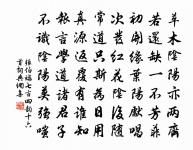 草木陰陽亦兩齊
若還缺一不芳菲
初開綠葉陽先唱
次發紅花陰後隨
常道只斯為日用
真源返覆有誰知
報言學道諸君子
不識陰陽莫強嗤
張伯端七言四韻十六
首